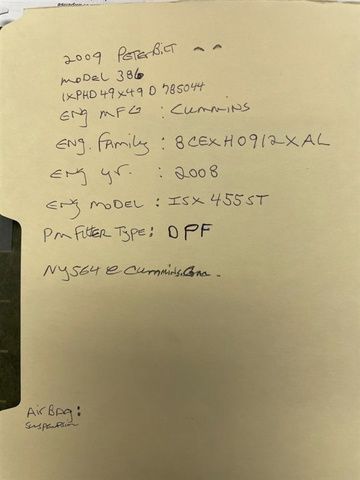 2009 PETERBILT
MODEL 386
1XPHD49X49D785044
ENG MFG : CUMMINS
ENG. Family : 8CEXH0912XAL
ENG yr. : 2008
ENG MODEL : ISX 455ST
PM Filter Type: DPF
NY564@Cummins.Com
AirBag:
suspension